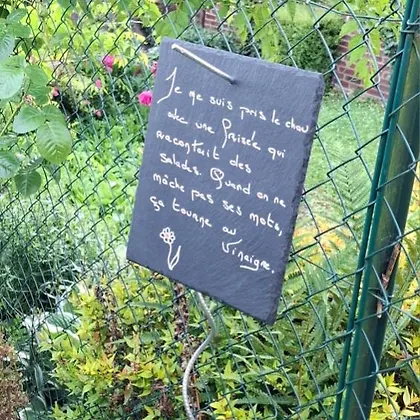 Je me suis pris le chou
avec une frisée qui
racontait des
salades. Quand on ne
mâche pas ses mots,
ça tourne au
Vinaigre.